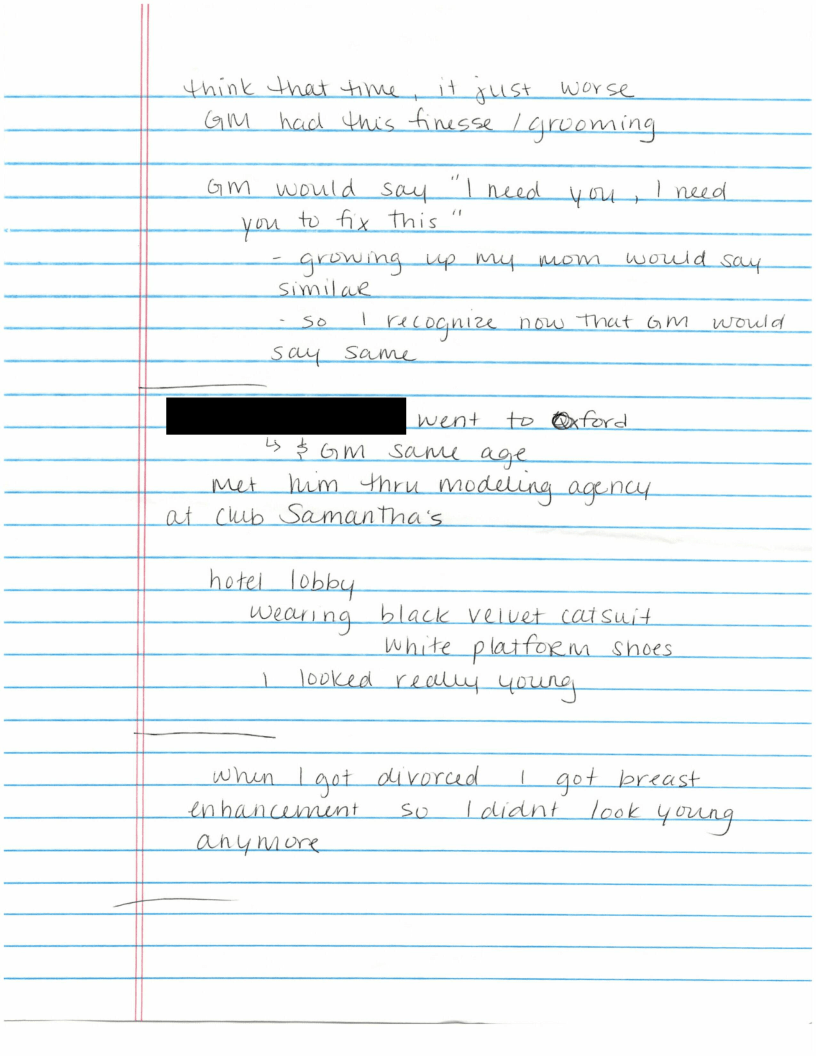 think that time, it just worse
GM had this finesse / grooming
GM would say "I need you, I need
you to fix this"
- growing up my mom would say
similar
- so I recognize now that GM would
say same
went to Oxford
↳ & GM same age
met him thru modeling agency
at club Samantha's
hotel lobby
wearing black velvet catsuit
white platform shoes
I looked really young
when I got divorced I got breast
enhancement so I didnt look young
anymore